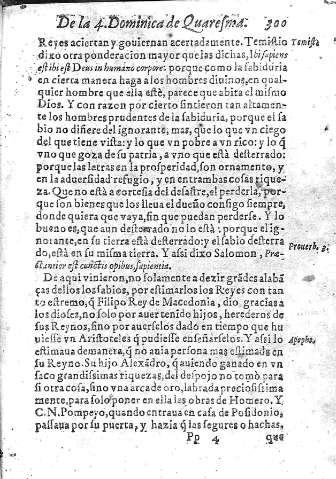 De la 4. Dominica de Quaresma. 300
Reyes aciertan y gouiernan acertadamente. Temistio
dixo otra ponderacion mayor que las dichas, Ibi sapiens
est ibi est Deus in humano corpore: porque como la sabiduria
en cierta manera haga a los hombres diuinos, en qual-
quier hombre que ella estè, parece que abita el mismo
Dios. Y con razon por cierto sintieron tan altamen-
te los hombres prudentes de la sabiduria, porque el sa
bio no difiere del ignorante, mas, que lo que vn ciego
del que tiene vista: y lo que vn pobre a vn rico: y lo q̃
vno que goza de su patria, a vno que està desterrado:
porque las letras en la prosperidad, son ornamento, y
en la aduersidad refugio, y en entrambas cosas rique-
za. Que no està a cortesia del desastre, el perderla, por-
que son bienes que los lleua el dueño consigo siempre,
donde quiera que vaya, sin que puedan perderse. Y lo
bueno es, que aun desterrado no lo està: porque el ig-
norante, en su tierra està desterrado: y el sabio desterra
do, està en su misma tierra. Y assi dixo Salomon, Præ-
stantior est cunctis opibus sapientia.
De aqui vinieron, no solamente a dezir grãdes alabã
ças dellos los sabios, por estimarlos los Reyes con tan
to estremo, q̃ Filipo Rey de Macedonia, dio gracias a
los dioses, no solo por auer tenido hijos, herederos de
sus Reynos, sino por auerselos dado en tiempo que hu
uiesse vn Aristoteles q̃ pudiesse enseñarselos. Y assi lo
estimaua de manera, q̃ no auia persona mas estimada en
su Reyno. Su hijo Alexãdro, q̃ auiendo ganado en vn
saco grandissimas riquezas, del despojo no tomò para
si otra cosa, sino vna arca de oro, labrada preciosissima
mente, para solo poner en ella las obras de Homero. Y
C. N. Pompeyo, quando entraua en casa de Posidonio,
passaua por su puerta, y hazia q̃ las segures o hachas,
Pp 4 que
Temistio
Prouerb. 3.
Apopht.